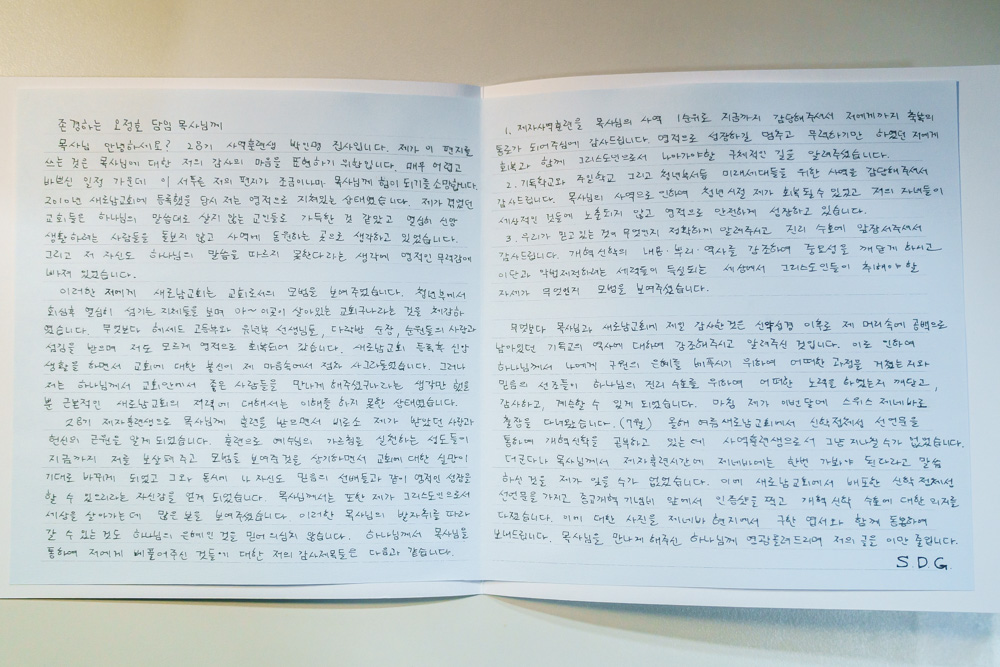 존경하는 오정호 담임 목사님께
목사님 안녕하세요? 28기 사역훈련생 박인명 집사입니다. 제가 이 편지를
쓰는 것은 목사님에 대한 저의 감사의 마음을 표현하기 위함입니다. 매우 어렵고
바쁘신 일정 가운데 이 서툰 저의 편지가 조금이나마 목사님께 힘이 되기를 소망합니다.
2010년 새로남교회에 등록했을 당시 저는 영적으로 지쳐있는 상태였습니다. 제가 겪었던
교회들은 하나님의 말씀대로 살지 않는 교인들로 가득한 것 같았고 열심히 신앙
생활하려는 사람들을 돌보지 않고 사역에 동원하는 곳으로 생각하고 있었습니다.
그리고 저 자신도 하나님의 말씀을 따르지 못한다라는 생각에 영적인 무력감에
빠져 있었습니다.
이러한 저에게 새로남교회는 교회로서의 모범을 보여주었습니다. 청년부에서
회심후 열심히 섬기는 지체들을 보며 아~ 이곳이 살아있는 교회구나라는 것을 체감하
였습니다. 무엇보다 헤세드 고등부와 유년부 선생님들, 다락방 순장, 순원들의 사랑과
섬김을 받으며 저도 모르게 영적으로 회복되어 갔습니다. 새로남교회 등록후 신앙
생활을 하면서 교회에 대한 불신이 제 마음속에서 점차 사그라들었습니다. 그러나
저는 하나님께서 교회안에서 좋은 사람들을 만나게 해주셨구나라는 생각만 했을
뿐 근본적인 새로남교회의 저력에 대해서는 이해를 하지 못한 상태였습니다.
28기 제자훈련생으로 목사님께 훈련을 받으면서 비로소 제가 받았던 사랑과
헌신의 근원을 알게 되었습니다. 훈련으로 예수님의 가르침을 실천하는 성도들이
지금까지 저를 보살펴주고 모범을 보여준것을 상기하면서 교회에 대한 실망이
기대로 바뀌게 되었고 그와 동시에 나 자신도 믿음의 선배들과 같이 영적인 성장을
할 수 있으리라는 자신감을 얻게 되었습니다. 목사님께서는 또한 제가 그리스도인으로서
세상을 살아가는데 많은 본을 보여주셨습니다. 이러한 목사님의 발자취를 따라
갈 수 있는것도 하나님의 은혜인 것을 믿어 의심치 않습니다. 하나님께서 목사님을
통하여 저에게 베풀어주신 것들에 대한 저의 감사제목들은 다음과 같습니다.
1. 제자사역훈련을 목사님의 사역 1순위로 지금까지 감당해주셔서 저에게까지 축복의
통로가 되어주심에 감사드립니다. 영적으로 성장하길 멈추고 무력하기만 하였던 저에게
회복과 함께 그리스도인으로서 나아가야할 구체적인 길을 알려주셨습니다.
2. 기독학교와 주일학교 그리고 청년부서등 미래세대들을 위한 사역을 감당해주셔서
감사드립니다. 목사님의 사역으로 인하여 청년시절 제가 회복될수 있었고 저의 자녀들이
세상적인 것들에 노출되지 않고 영적으로 안전하게 성장하고 있습니다.
3. 우리가 믿고 있는 것이 무엇인지 정확하게 알려주시고 진리 수호에 앞장서주셔서
감사드립니다. 개혁 신학의 내용·뿌리·역사를 강조하여 중요성을 깨닫게 하시고
이단과 악법제정하려는 세력들이 득실되는 세상에서 그리스도인들이 취해야 할
자세가 무엇인지 모범을 보여주셨습니다.
무엇보다 목사님과 새로남교회에 제일 감사한것은 신약성경 이후로 제 머리속에 공백으로
남아있던 기독교의 역사에 대하여 강조해주시고 알려주신 것입니다. 이로 인하여
하나님께서 나에게 구원의 은혜를 베푸시기 위하여 어떠한 과정을 거쳤는지와
믿음의 선조들이 하나님의 진리 수호를 위하여 어떠한 노력을 하였는지 깨닫고,
감사하고, 계승할 수 있게 되었습니다. 마침 제가 이번달에 스위스 제네바로
출장을 다녀왔습니다. (7월) 올해 여름 새로남교회에서 신학정체성 선언문을
통하여 개혁신학을 공부하고 있는데 사역훈련생으로서 그냥 지나칠 수가 없었습니다.
더군다나 목사님께서 제자훈련시간에 제네바에는 한번 가봐야 된다라고 말씀
하신 것을 제가 잊을 수가 없었습니다. 이에 새로남교회에서 배포한 신학정체성
선언문을 가지고 종교개혁 기념비 앞에서 인증샷을 찍고, 개혁신학 수호에 대한 의지를
다졌습니다. 이에 대한 사진을 제네바 현지에서 구한 엽서와 함께 동봉하여
보내드립니다. 목사님을 만나게 해주신 하나님께 영광올려드리며 저의 글을 이만 줄입니다.
S.D.G.